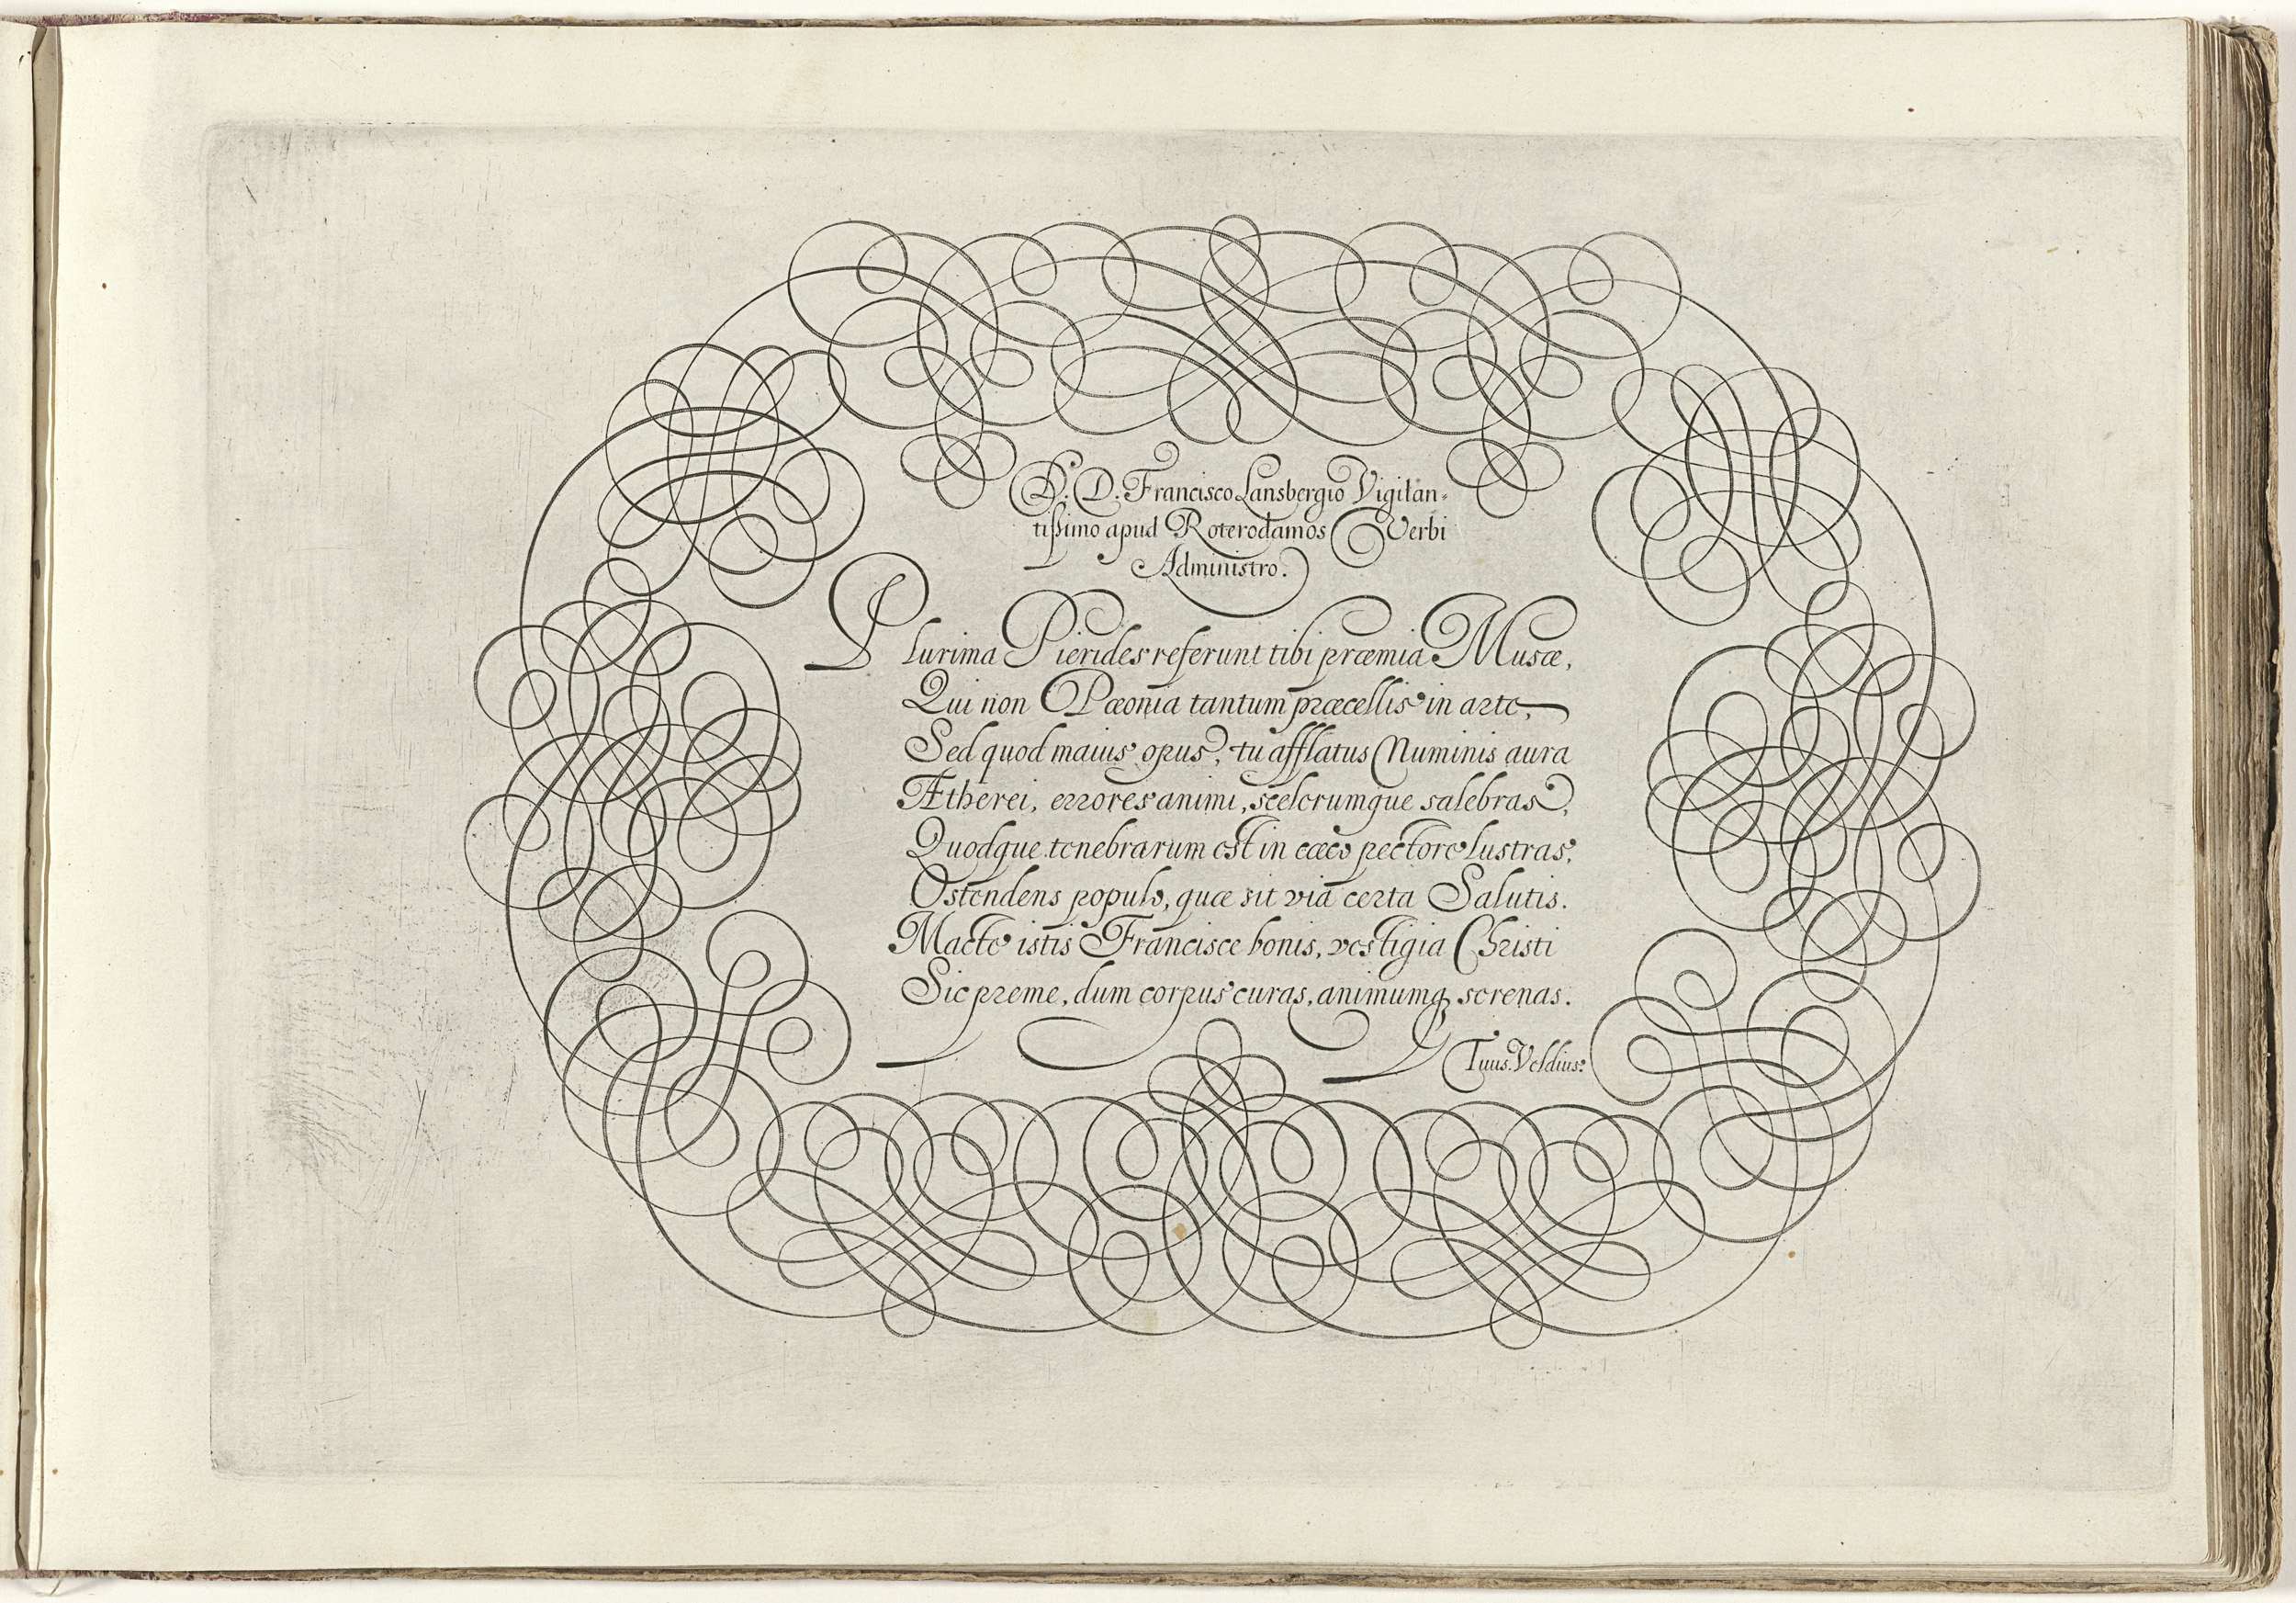 D. D. Francisco Lansbergio Vigilan-
tissimo apud Roterodamos Verbi
Administro.
Plurima Pierides referunt tibi præmia Musæ,
Qui non Pæonia tantum præcellis in arte,
Sed quod maius opus, tu afflatus Numinis aura
Ætherei, errores animi, scelerumque salebras,
Quodque tenebrarum est in cæco pectore lustras,
Ostendens populo, quæ sit via certa Salutis.
Macte istis Francisce bonis, vestigia Christi
Sic preme, dum corpus curas, animumq, serenas.
Tuus. Veldius.